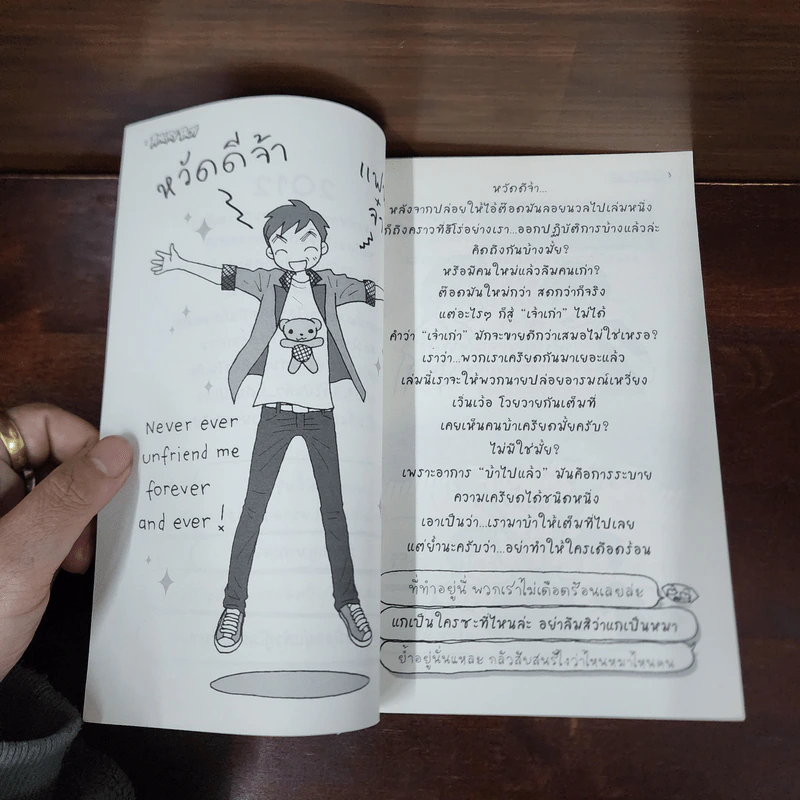 หวัดดีจ้า
Never ever
unfriend me
forever
and ever!
หวัดดีจ้า...
หลังจากปล่อยให้ไอ้ต๊อดมันลอยนวลไปเล่มหนึ่ง
ก็ถึงคราวที่ฮีโร่อย่างเรา...ออกปฏิบัติการบ้างแล้วล่ะ
คิดถึงกันบ้างมั้ย?
หรือมีคนใหม่แล้วลืมคนเก่า?
ต๊อดมันใหม่กว่า สดกว่าก็จริง
แต่อะไรๆ ก็สู้ “เจ้าเก่า” ไม่ได้
คำว่า “เจ้าเก่า” มักจะขายดีกว่าเสมอไม่ใช่เหรอ?
เราว่า...พวกเราเครียดกันมาเยอะแล้ว
เล่มนี้เราจะให้พวกนายปล่อยอารมณ์เหวี่ยง
เว่นเว้อ โวยวายกันเต็มที่
เคยเห็นคนบ้าเครียดมั้ยครับ?
ไม่มีใช่มั้ย?
เพราะอาการ “บ้าไปแล้ว” มันคือการระบาย
ความเครียดได้ชนิดหนึ่ง
เอาเป็นว่า...เรามาบ้าให้เต็มที่ไปเลย
แต่ย้ำนะครับว่า...อย่าทำให้ใครเดือดร้อน
ที่ทำอยู่นี่ พวกเราไม่เดือดร้อนเลยล่ะ
แกเป็นใครซะที่ไหนล่ะ อย่าลืมสิว่าแกเป็นหมา
ย้ำอยู่นั่นแหละ กลัวสับสนรึไงว่าไหนหมาไหนคน